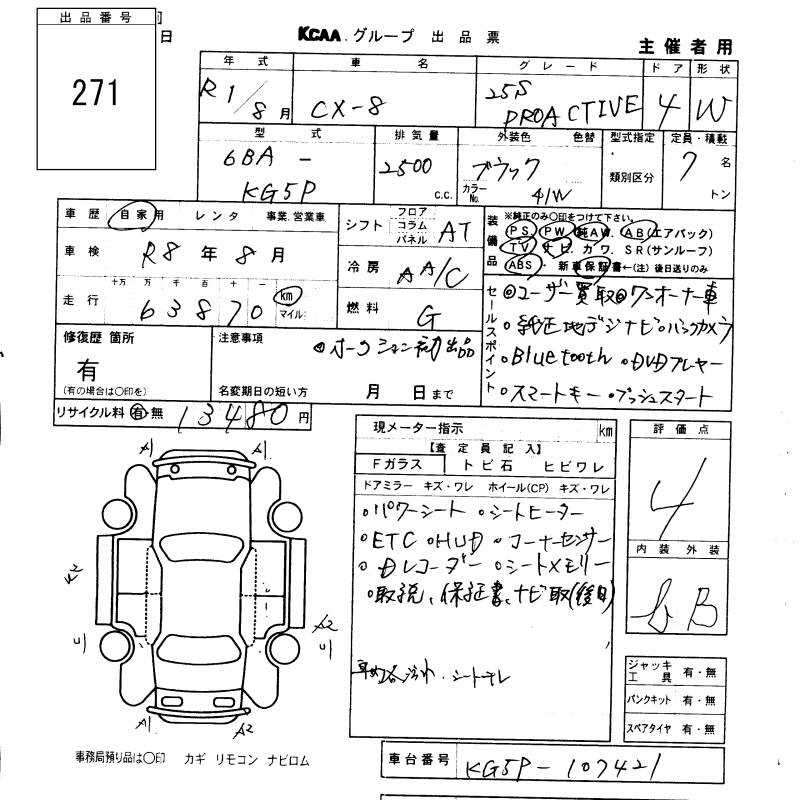 出品番号
271
日
KCAA.グループ 出品票
主催者用
年式 車名 グレード ドア 形状
R1/8月 CX-8 25S PROACTIVE 4 W
型式 排気量 外装色 色替 型式指定 定員・積載
6BA - KG5P 2500 c.c. ブラック カラーNo. 41W 類別区分 7名 トン
車歴 自家用 レンタ 事業.営業車
シフト フロア コラム パネル AT
装備品 ※純正のみ〇印をつけて下さい。
PS・PW・純AW.AB(エアバック)
TV カワ.SR(サンルーフ)
ABS・新車保証書←(注)後日送りのみ
車検 R8年8月
冷房 AA/C
走行 十万 万 千 百 十 一
63870 km マイル
燃料 G
セールスポイント
◎ユーザー買取◎ワンオーナー車
・純正地デジナビ・バックカメラ
・Bluetooth ・DVDプレヤー
・スマートキー・プッシュスタート
修復歴 箇所
有
(有の場合は〇印を)
注意事項
◎オークション初出品
名変期日の短い方 月 日まで
リサイクル料 有 無 13480円
現メーター指示 km
【査定員記入】
Fガラス トビ石 ヒビワレ
ドアミラー キズ・ワレ ホイール(CP) キズ・ワレ
・パワーシート ・シートヒーター
・ETC ・HUD ・コーナーセンサー
・Dレコーダー ・シートメモリー
・取説、保証書、ナビ取(後日)
シートスレ
評価点
4
内装 外装
b B
A1 A1
A2
U U
A1 A2
ジャッキ工具 有・無
パンクキット 有・無
スペアタイヤ 有・無
事務局預り品は〇印 カギ リモコン ナビロム
車台番号 KG5P-107421